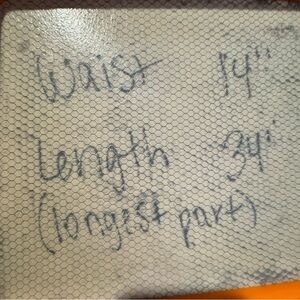 Waist 14"
Length 34"
(longest part)